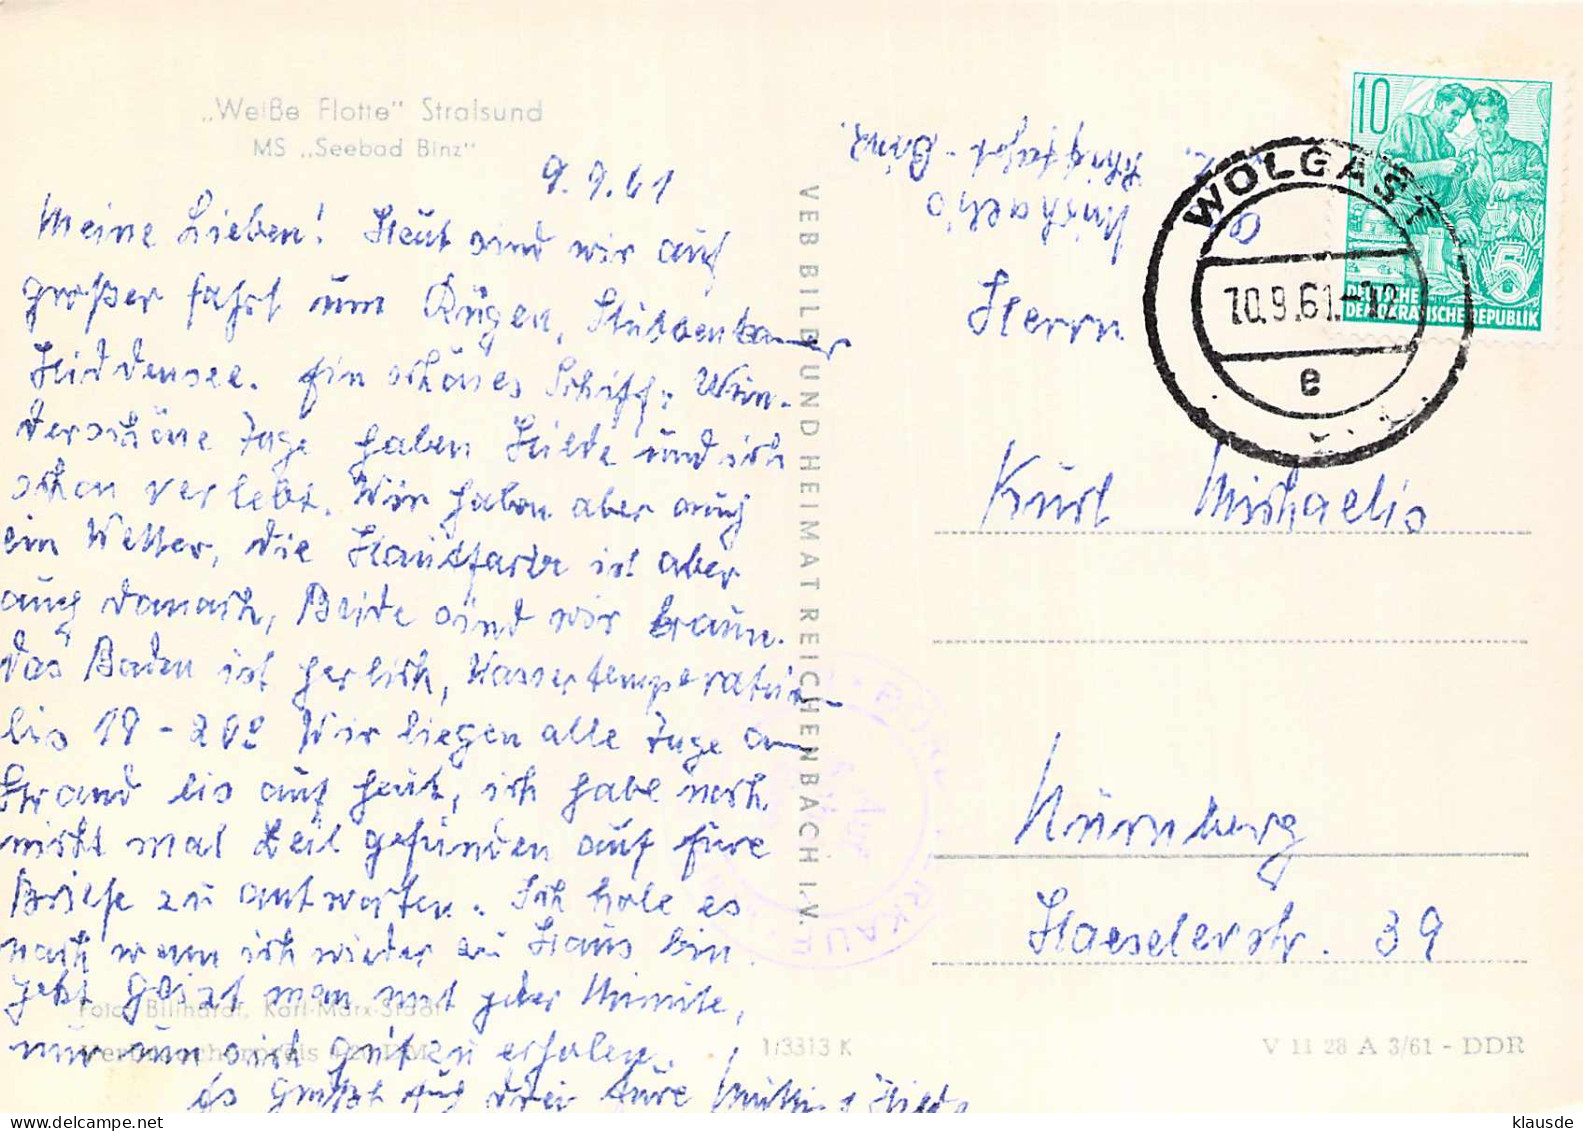 „Weiße Flotte" Stralsund
MS „Seebad Binz"
9.9.61
Meine Lieben! Heut sind wir auf
großer Fahrt um Rügen, Stubbenkammer
Hiddensee. Ein schönes Schiff. Wun-
derschöne Tage haben Hilde und ich
schon verlebt. Wir haben aber auch
ein Wetter, die Hautfarbe ist aber
auch danach, Beide sind wir braun.
Das Baden ist herlich, Wassertemperatur
bis 19-20° Wir liegen alle Tage am
Strand bis auf heut, ich habe noch
nicht mal Zeit gefunden auf Eure
Briefe zu antworten. Ich hole es
nach wenn ich wieder zu Haus bin.
Jetzt geizt man mit jeder Minute,
nur um sich gut zu erholen.
Es grüßt Euch drei Eure Mutti u. Hilde
Foto: Billhardt, Karl-Marx-Stadt
Verbraucherpreis
1/3313 K
VEB BILD UND HEIMAT REICHENBACH I. V.
Michaelis
z. Z. Schiffahrt - Binz.
WOLGAST
10.9.61.-12
e
10
5
DEUTSCHE
DEMOKRATISCHE REPUBLIK
Herrn
Kurt Michaelis
Nürnberg
Haeselerstr. 39
V 11 28 A 3/61 - DDR
klausde